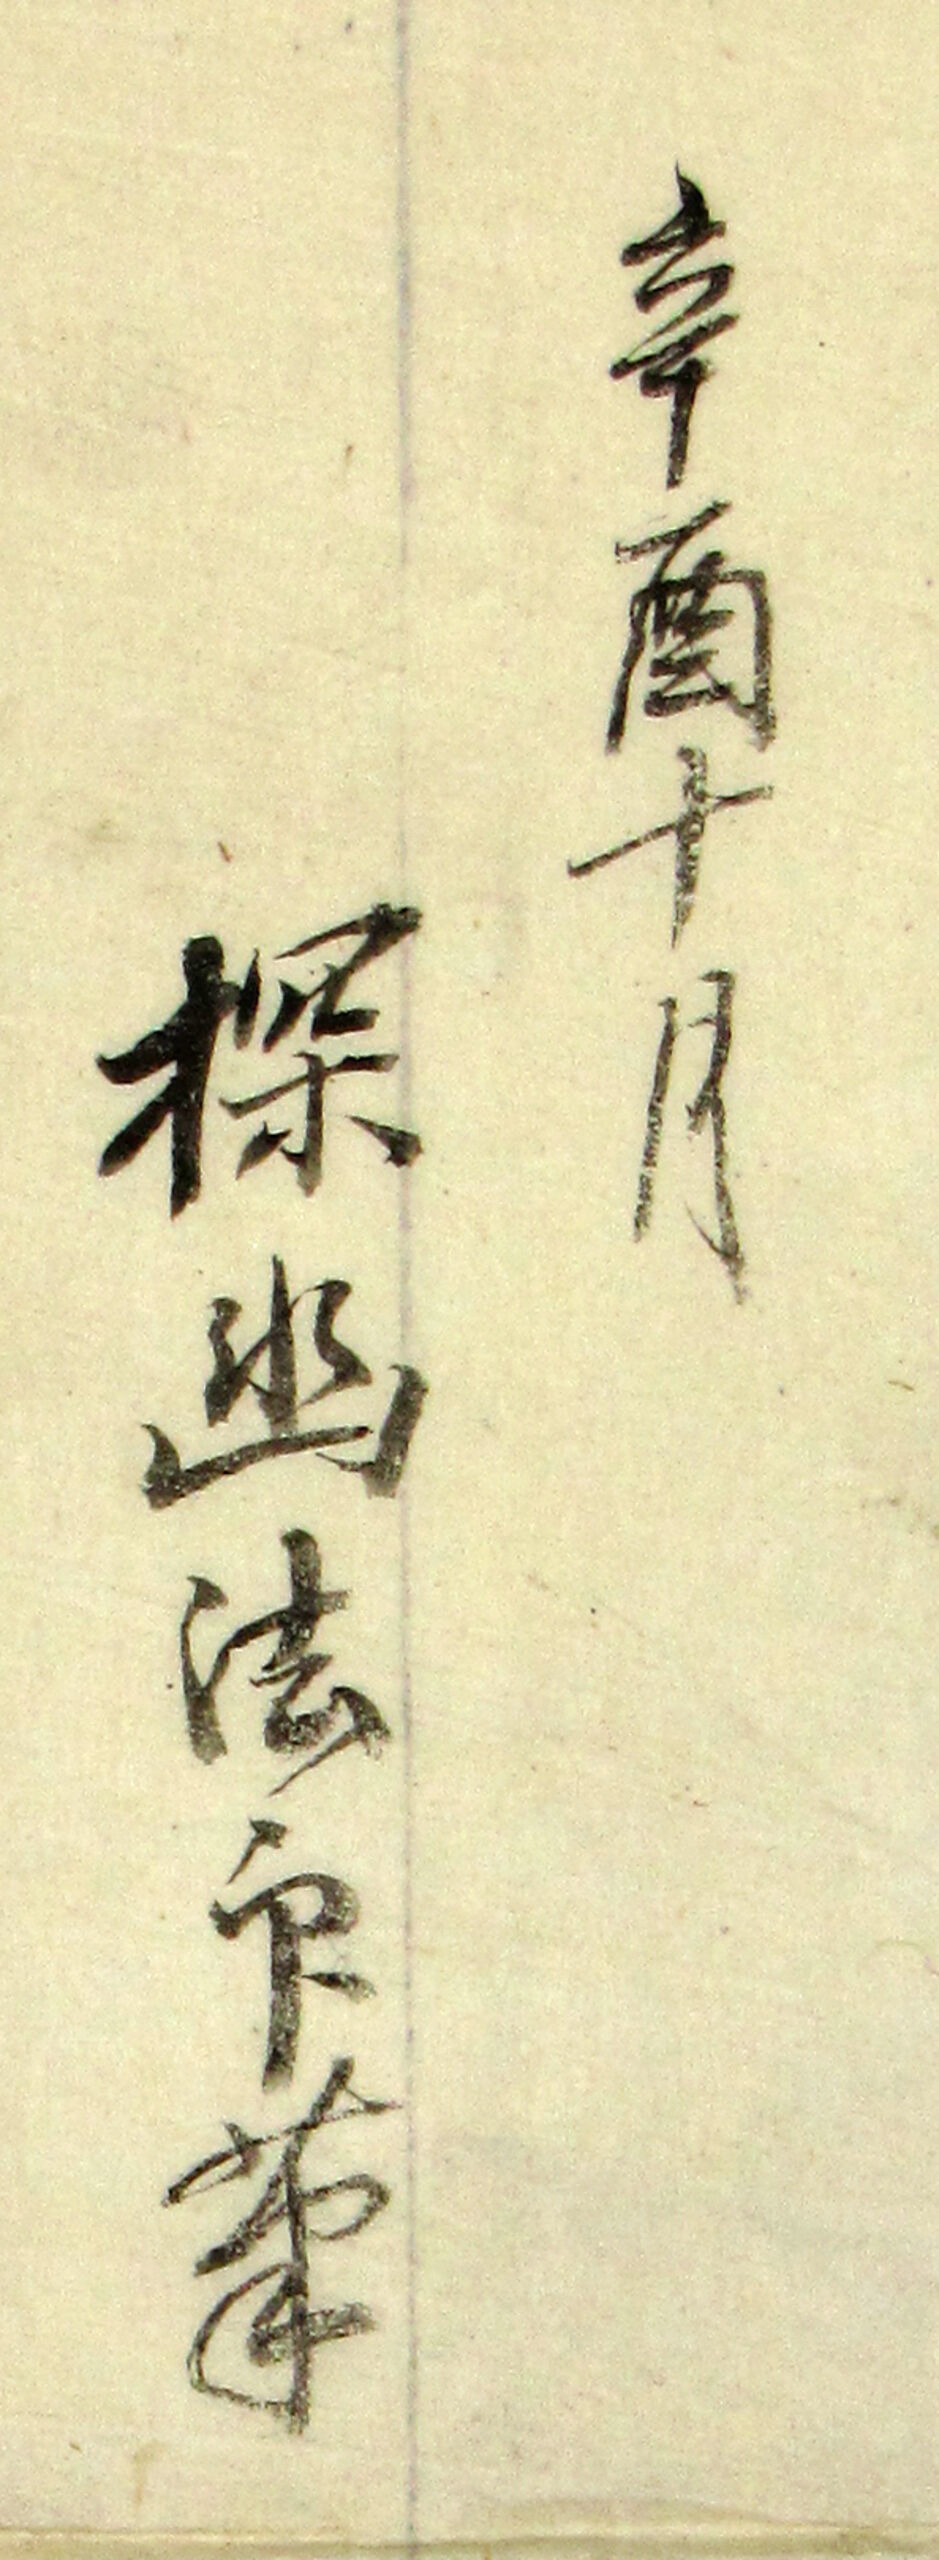 辛酉十月
探幽法印筆